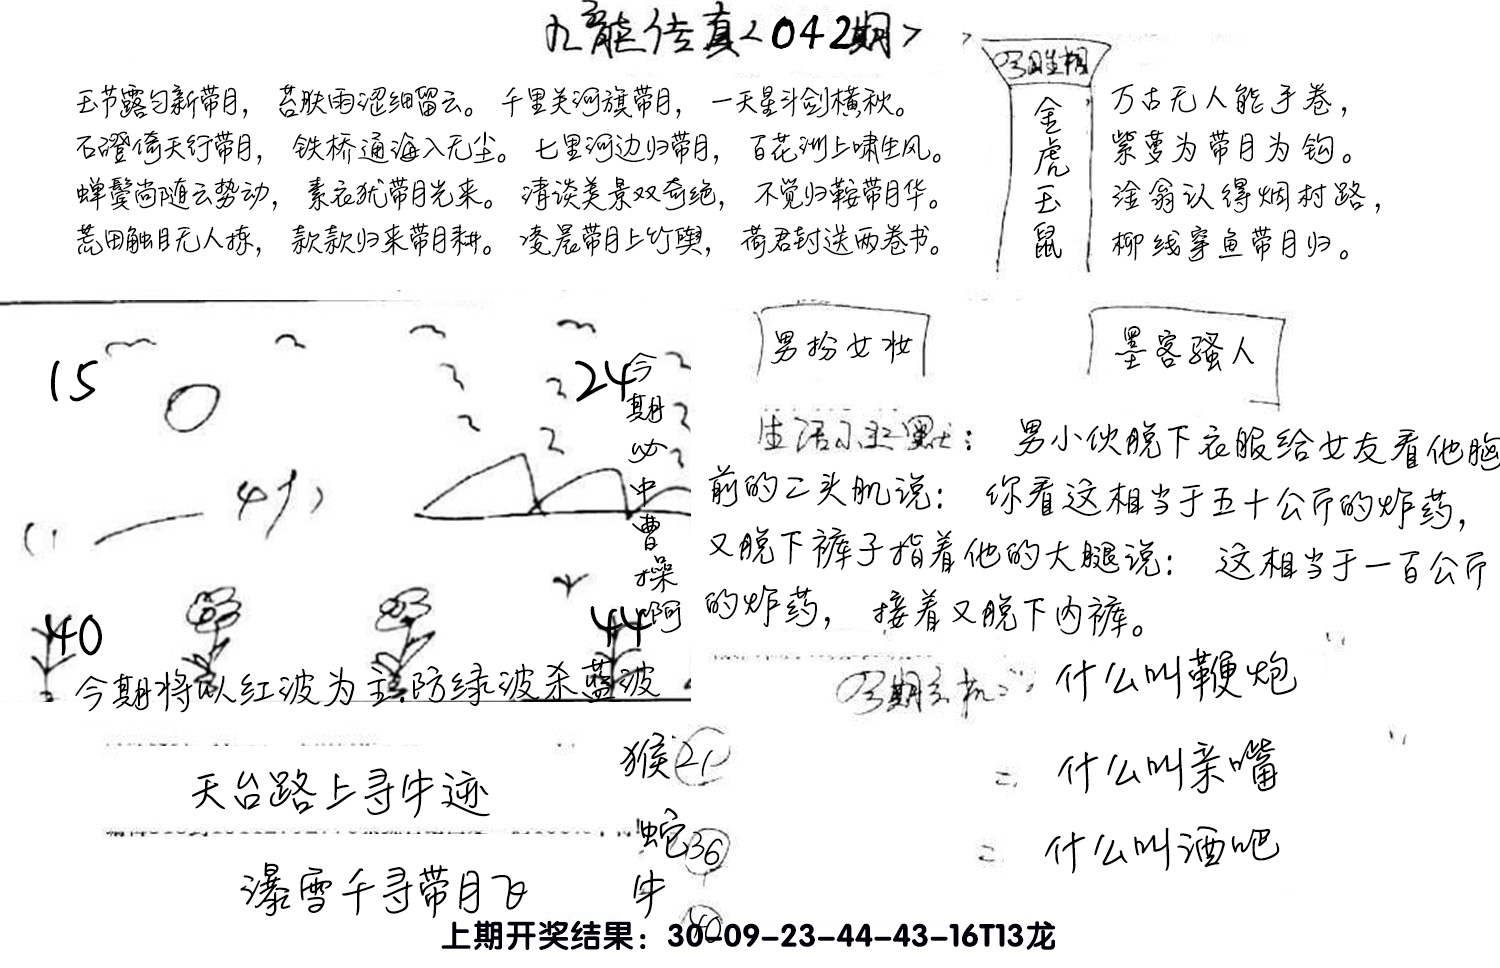 九龍传真<042期>
玉节露匀新带月，苔肤雨涩细留云。千里关河旗带月，一天星斗剑横秋。
石磴倚天行带月，铁桥通海入无尘。七里河边归带月，百花洲上啸生风。
蝉鬓尚随云势动，素衣犹带月光来。清谈美景双奇绝，不觉归鞍带月华。
荒田触目无人掠，款款归来带月耕。凌晨带月上竹舆，荷君封送两卷书。
金虎玉鼠
万古无人能手卷，
紫萝为带月为钩。
淦翁认得烟村路，
柳线穿鱼带月归。
15
24
今期必中曹操啊
40
44
今期将以红波为主.防绿波杀蓝波
男扮女妆
墨客骚人
生活幽默：男小伙脱下衣服给女友看他胸
前的二头肌说：你看这相当于五十公斤的炸药，
又脱下裤子指着他的大腿说：这相当于一百公斤
的炸药，接着又脱下内裤。
今期玄机 什么叫鞭炮
什么叫亲嘴
什么叫酒吧
天台路上寻牛迹
瀑雪千寻带月飞
猴21
蛇36
牛40
上期开奖结果：30-09-23-44-43-16T13龙